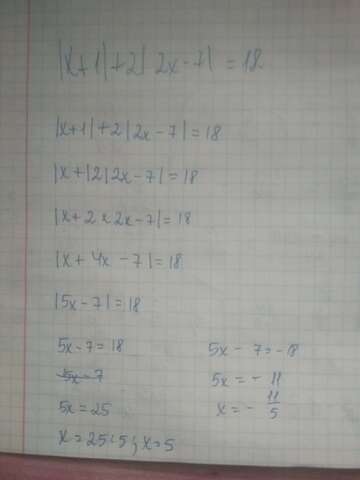 |x+1|+2|2x-7|=18
|x+1|+2|2x-7|=18
|x+|2|2x-7|=18
|x+2×2x-7|=18
|x+4x-7|=18
|5x-7|=18
5x-7=18 5x-7=-18
5x=7 5x=-11
5x=25 x=-11/5
x=25:5; x=5